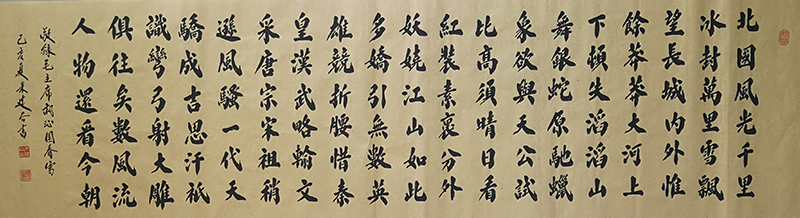 北國風光千里
冰封萬里雪飄
望長城內外惟
餘莽莽大河上
下頓失滔滔山
舞銀蛇原馳蠟
象欲與天公試
比高須晴日看
紅裝素裹分外
妖嬈江山如此
多嬌引無數英
雄競折腰惜秦
皇漢武略輸文
采唐宗宋祖稍
遜風騷一代天
驕成吉思汗祇
識彎弓射大雕
俱往矣數風流
人物還看今朝
敬錄毛主席詞沁園春雪
己亥夏朱建書